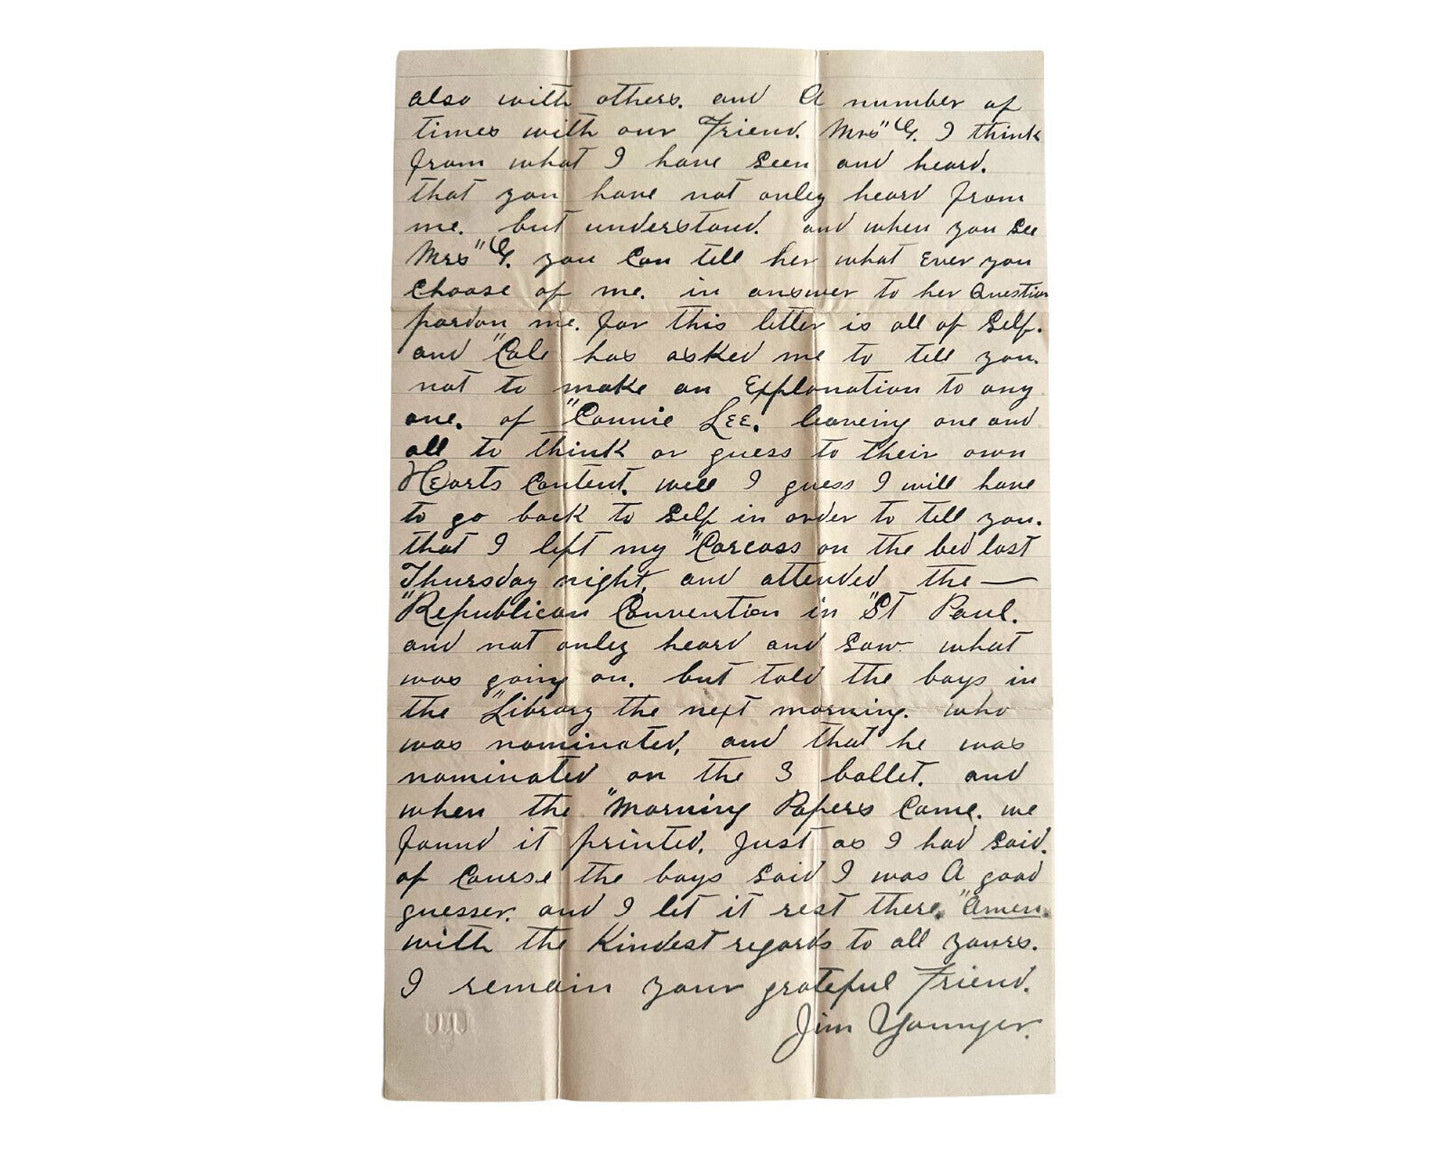 also with others. and A number of
times with our Friend. Mrs" G. I think
from what I have seen and heard.
that you have not onley heard from
me. but understand. and when you see
Mrs" G. you Can tell her what Ever you
Choose of me. in answer to her Question
pardon me. for this letter is all of Self.
and "Cole has asked me to tell you.
not to make an Explanation to any
one. of "Connie LEE. leaveing one and
all to think or guess to their own
HEarts Content. well I guess I will have
to go back to Self in order to tell you.
that I left my "Carcass on the bed last
Thursday night, and attended the —
"Republican Convention in "St Paul.
and not onley heard and Saw what
was going on. but told the boys in
the "Library the next morning. who
was nominated, and that he was
nominated on the 3 ballet. and
when the "Morning Papers Came. we
found it printed, Just as I had Said.
of CoursE the boys Said I was A good
guesser. and I let it rest there. "Amen.
with the Kindest regards to all yours.
I remain your grateful Friend.
Jim Younger.